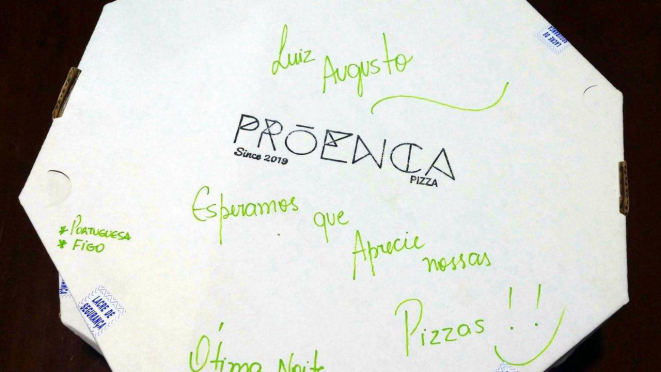 LACRE DE SEGURANÇA
Luiz
Augusto
PRŌENCA
Since 2019
PIZZA
Esperamos que
Aprecie
nossas
* PORTUGUESA
* FIGO
Pizzas !!
LACRE DE
SEGURANÇA
Ótima Noite